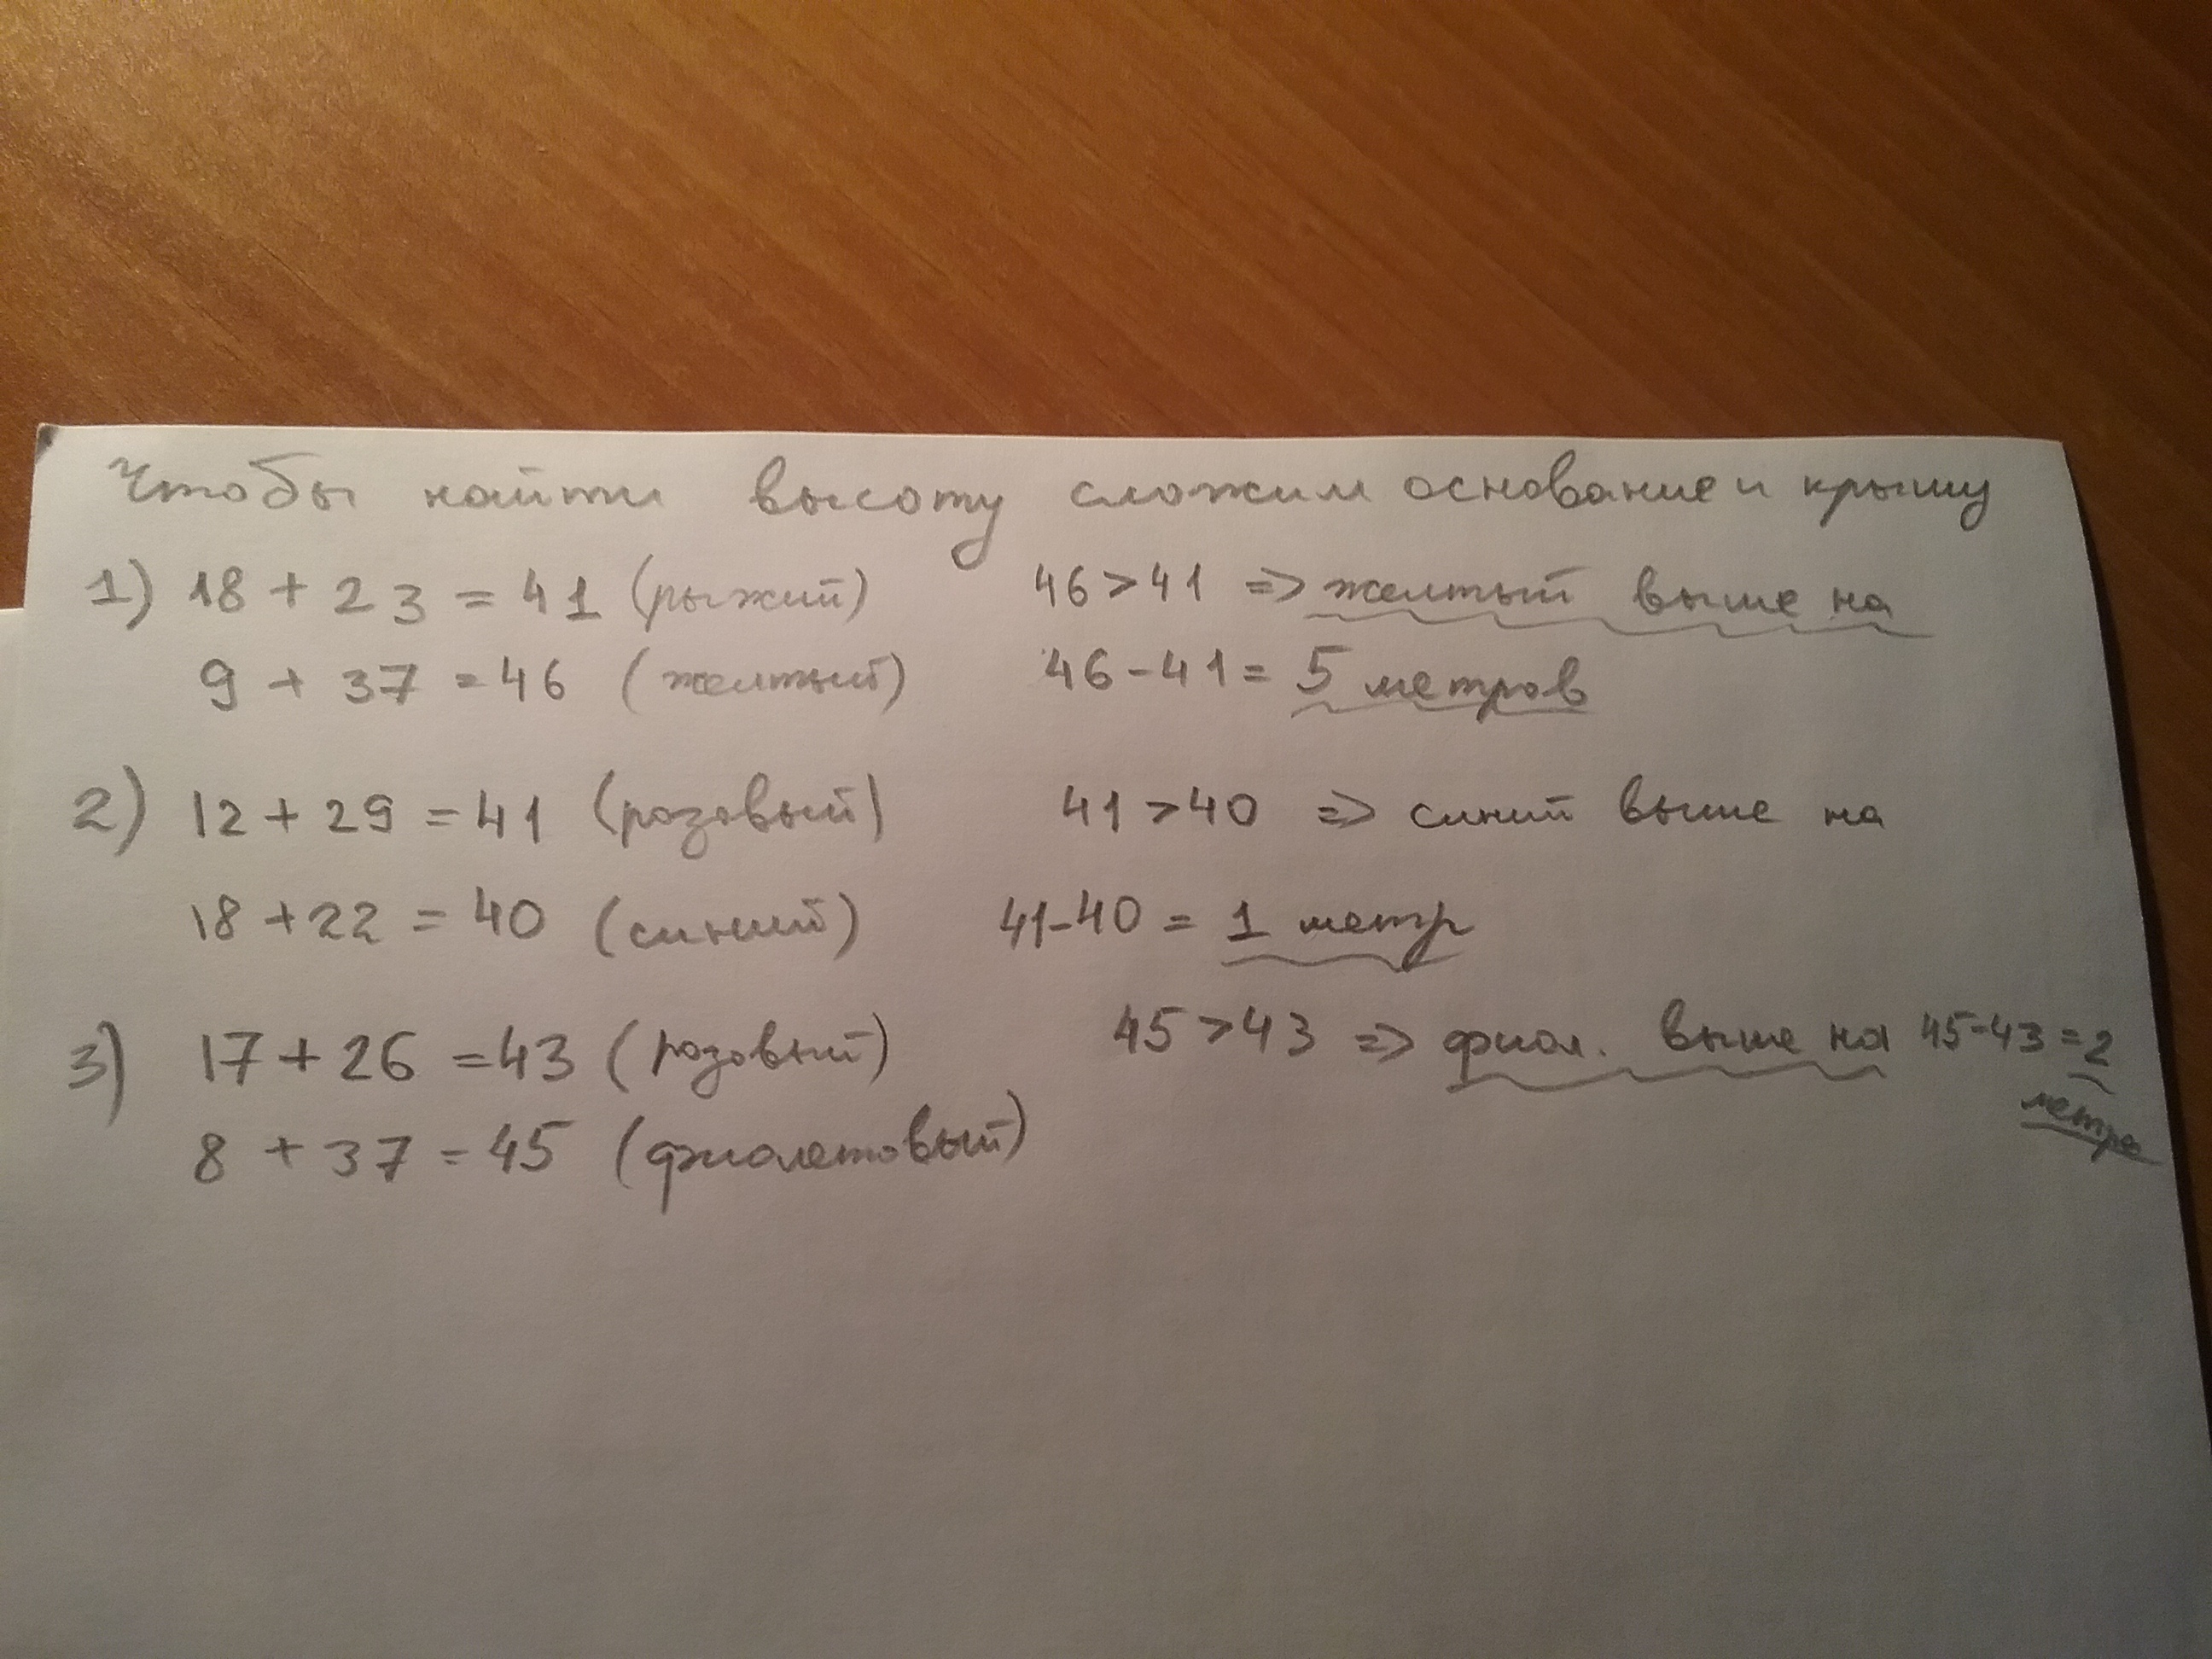 Чтобы найти высоту сложим основание и крышу
1) 18 + 23 = 41 (рыжий) 46 > 41 => желтый выше на
9 + 37 = 46 (желтый) 46 - 41 = 5 метров
2) 12 + 29 = 41 (розовый) 41 > 40 => синий выше на
18 + 22 = 40 (синий) 41 - 40 = 1 метр
3) 17 + 26 = 43 (розовый) 45 > 43 => фиол. выше на 45 - 43 = 2
метра
8 + 37 = 45 (фиолетовый)